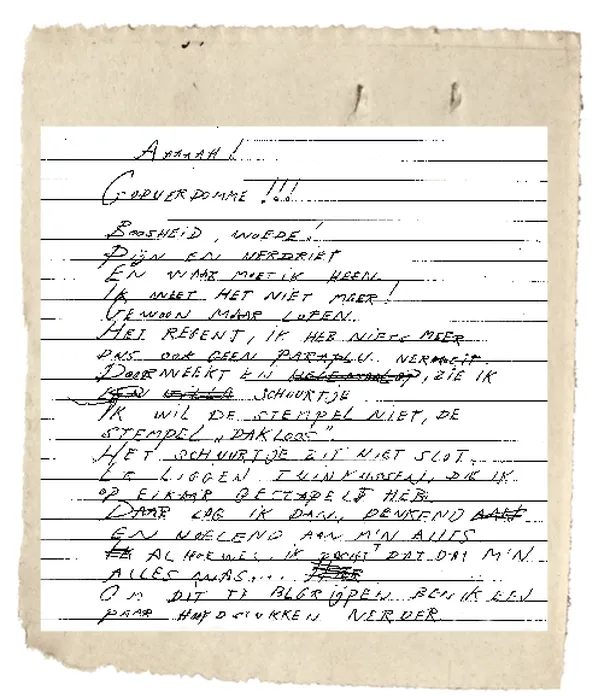 Aaaaah!
Godverdomme !!!
Boosheid, woede!
Pijn en verdriet
En waar moet ik heen.
Ik weet het niet meer!
Gewoon maar lopen.
Het regent, ik heb niets meer
dus ook geen paraplu. Vermoeit.
Doorweekt en helemaal op, zie ik
een schuurtje
Ik wil de stempel niet, de
stempel „dakloos”.
Het schuurtje zit niet slot.
Er liggen tuinkussen, die ik
op elkaar gestapeld heb.
Daar lag ik dan, denkend
en voelend aan m'n alles
alhoewel, ik dacht dat dat m'n
alles was....
Om dit te begrijpen ben ik een
paar hoofdstukken verder